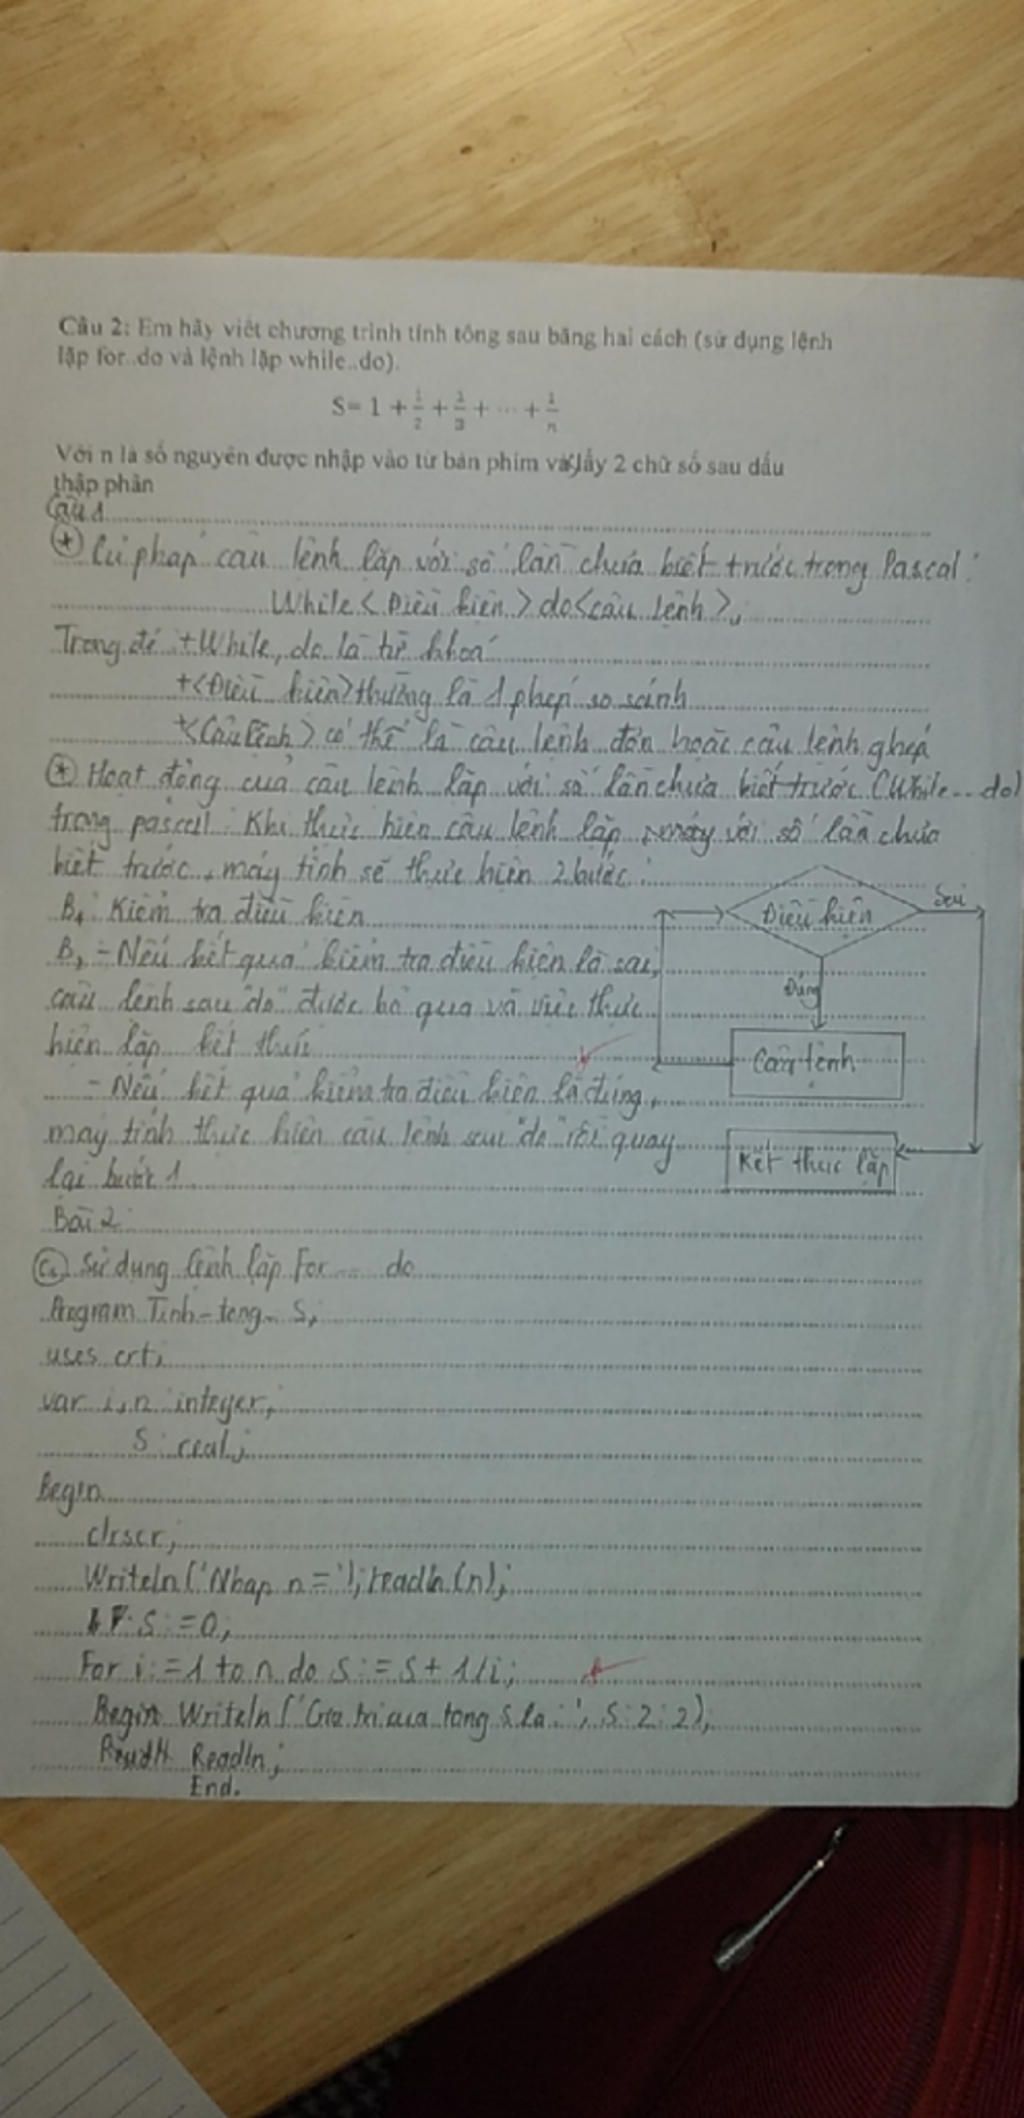 Câu 2: Em hãy viết chương trình tính tổng sau bằng hai cách (sử dụng lệnh
lặp for..do và lệnh lặp while..do).
S= 1 + 1/2 + 1/3 + ... + 1/n
Với n là số nguyên được nhập vào từ bàn phím và lấy 2 chữ số sau dấu
thập phân
Câu 1
* Cú pháp câu lệnh lặp với số lần chưa biết trước trong Pascal:
While <Điều kiện> do <câu lệnh>;
Trong đó +While, do là từ khoá
+<Điều kiện> thường là 1 phép so sánh
+<Câu lệnh> có thể là câu lệnh đơn hoặc câu lệnh ghép
* Hoạt động của câu lệnh lặp với số lần chưa biết trước (While...do)
trong pascal: Khi thực hiện câu lệnh lặp với số lần chưa
biết trước, máy tính sẽ thực hiện 2 bước:
B1: Kiểm tra điều kiện
B2 - Nếu kết quả kiểm tra điều kiện là sai,
câu lệnh sau "do" được bỏ qua và việc thực
hiện lặp kết thúc
- Nếu kết quả kiểm tra điều kiện là đúng,
máy tính thực hiện câu lệnh sau "do" rồi quay
lại bước 1
Điều kiện
Sai
Đúng
Câu lệnh
Kết thúc lặp
Bài 2:
Sử dụng lệnh lặp For ... do
Program Tinh-tong- S;
uses crt;
var i, n : integer;
S : real;
Begin
clrscr;
Writeln('Nhap n = '); readln(n);
S := 0;
For i := 1 to n do S := S + 1/i;
Begin Writeln('Gia tri cua tong S la : ', S:2:2);
Readln;
End.